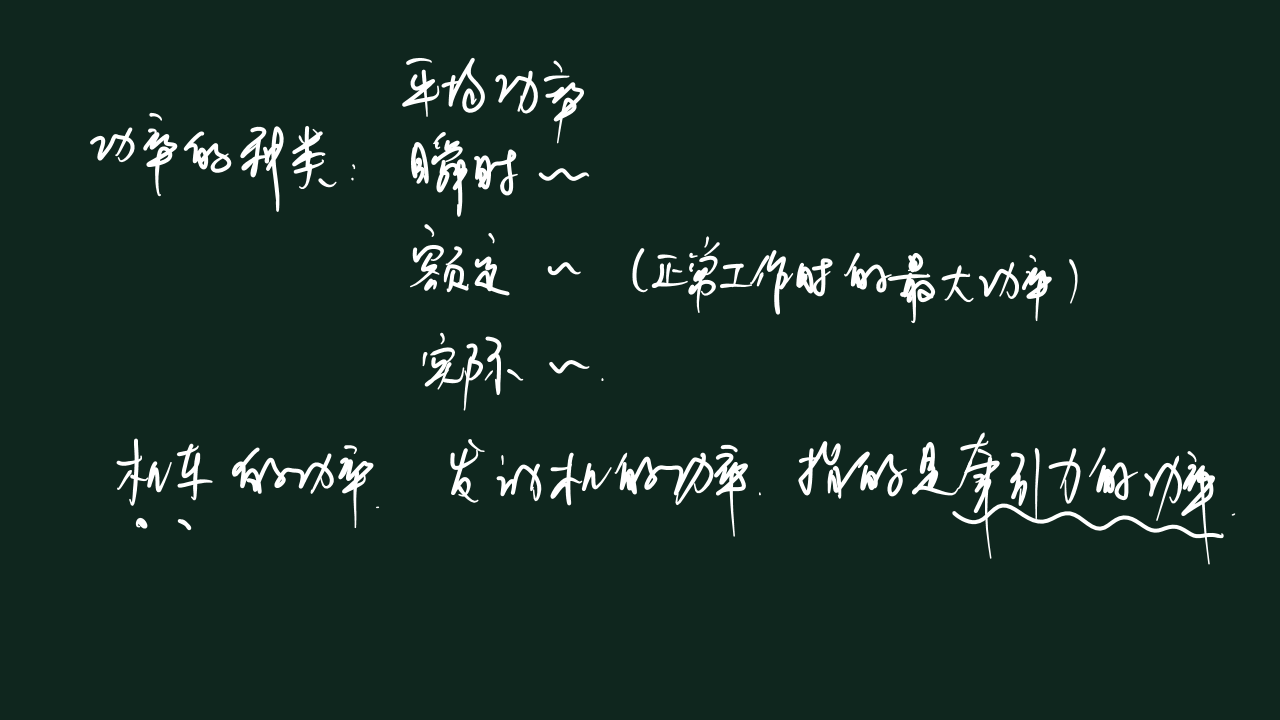 平均功率
功率的种类:
瞬时~
额定~(正常工作时的最大功率)
实际~.
机车的功率. 发动机的功率. 指的是牵引力的功率.